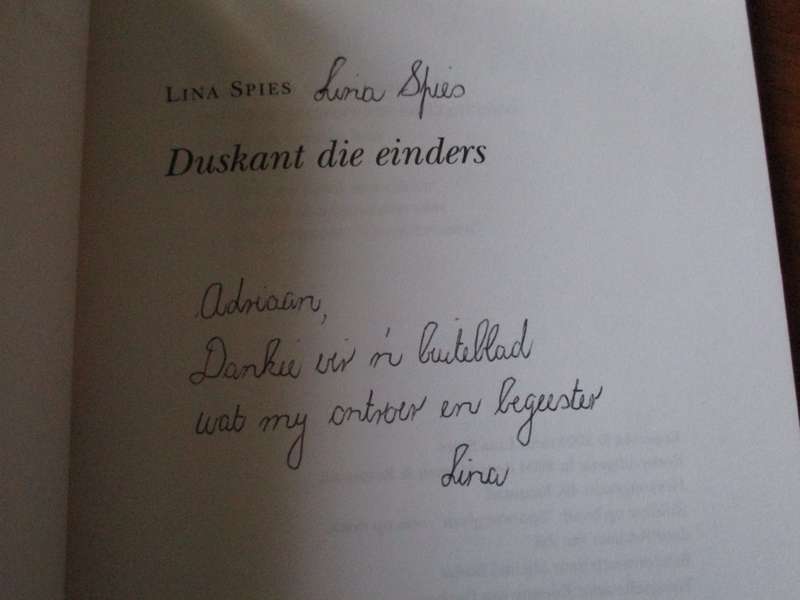 LINA SPIES Lina Spies
Duskant die einders
Adriaan,
Dankie vir 'n buiteblad
wat my ontroer en begeester
Lina